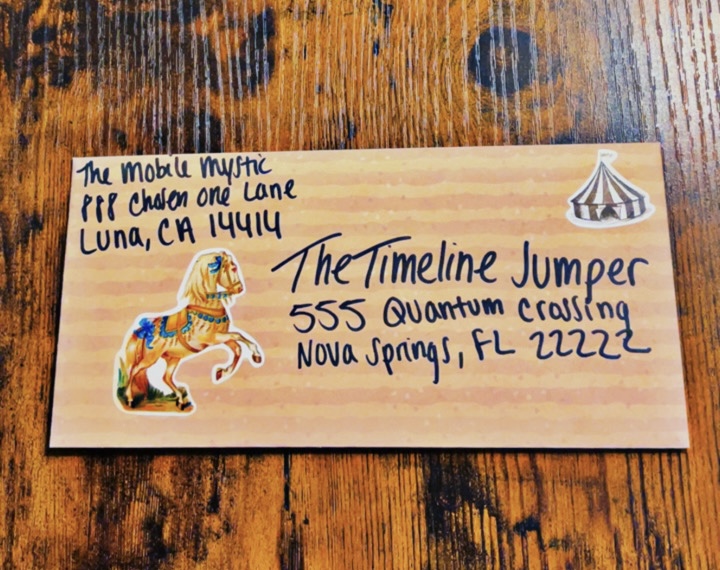 The Mobile Mystic
888 Chosen One Lane
Luna, CA 14414
The Timeline Jumper
555 Quantum Crossing
Nova Springs, FL 22222